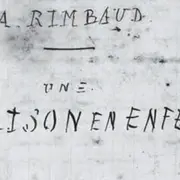 A. RIMBAUD.
UNE.
ISON EN ENFE